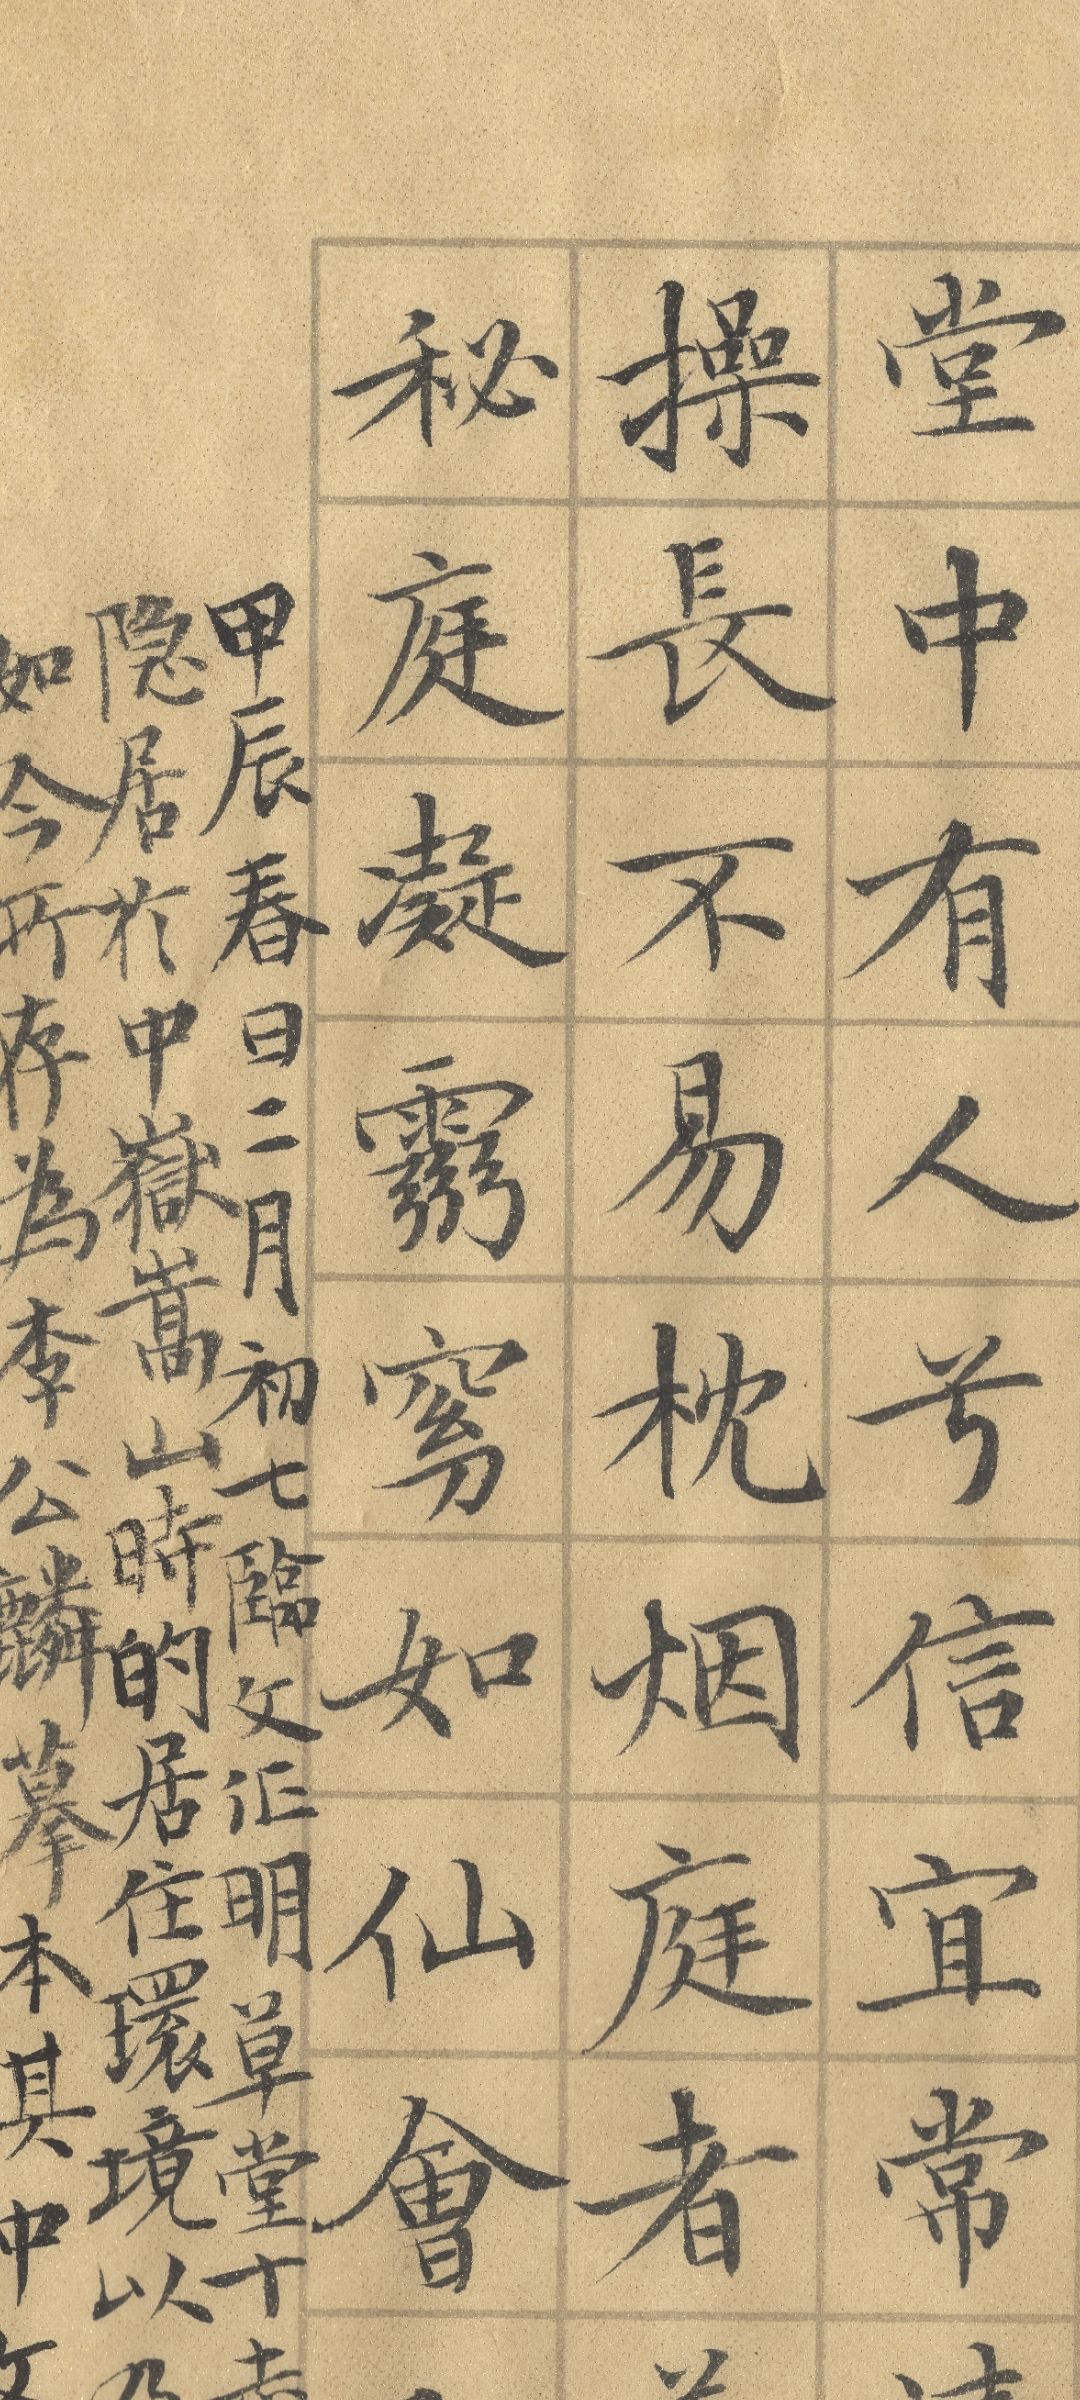 堂中有人兮信宜常
操長不易枕烟庭者
秘庭凝靄窅如仙會
甲辰春日二月初七臨文征明草堂十志
隐居於中嶽嵩山時的居住環境以
如今所存為李公麟摹本其中